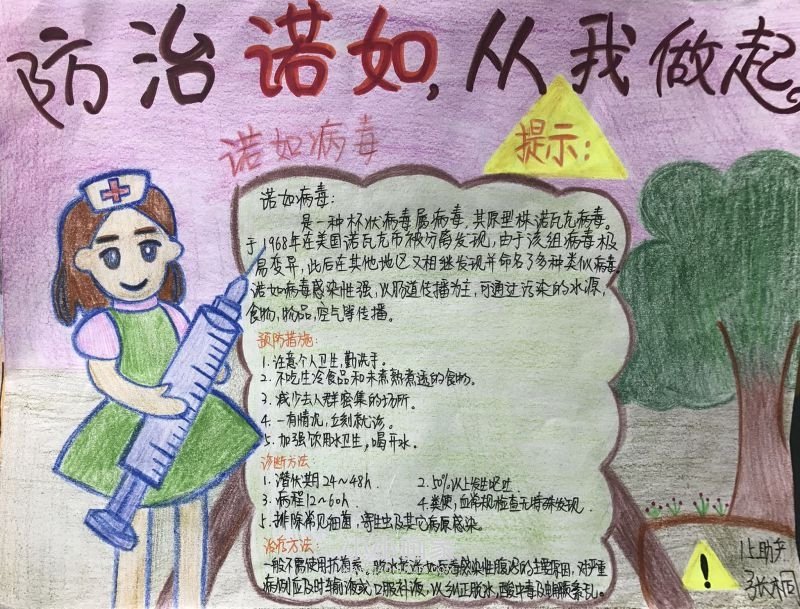 防治诺如，从我做起。
诺如病毒
提示：
诺如病毒：
是一种杯状病毒属病毒，其原型株诺瓦克病毒。
于1968年在美国诺瓦克市被分离发现，由于该组病毒极
易变异，此后在其他地区又相继发现并命名了多种类似病毒。
诺如病毒感染性强，以肠道传播为主，可通过污染的水源，
食物，物品，空气等传播。
预防措施：
1.注意个人卫生，勤洗手。
2.不吃生冷食品和未煮熟煮透的食物。
3.减少去人群密集的场所。
4.一有情况，立刻就诊。
5.加强饮用水卫生，喝开水。
诊断方法
1.潜伏期24~48h.
2.50%以上发生呕吐
3.病程12~60h.
4.粪便，血常规检查无特殊发现.
5.排除常见细菌，寄生虫及其它病原感染。
治疗方法：
一般不需使用抗菌素。脱水是诺如病毒感染性腹泻的主要原因，对严重
病例应及时输液或口服补液，以纠正脱水，酸中毒及电解质紊乱。
!
上助产
张桐